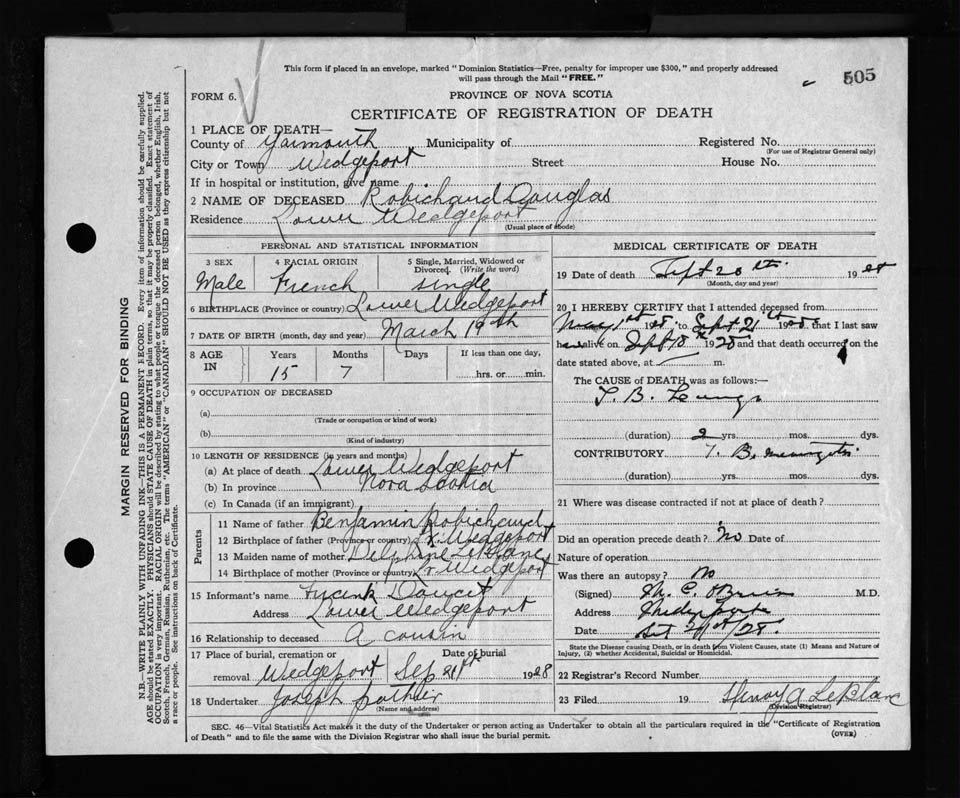 This form if placed in an envelope, marked "Dominion Statistics—Free, penalty for improper use $300," and properly addressed
will pass through the Mail "FREE."
505
FORM 6.
PROVINCE OF NOVA SCOTIA
CERTIFICATE OF REGISTRATION OF DEATH
MARGIN RESERVED FOR BINDING
N.B.—WRITE PLAINLY WITH UNFADING INK—THIS IS A PERMANENT RECORD. Every item of information should be carefully supplied.
AGE should be stated EXACTLY. PHYSICIANS should STATE CAUSE OF DEATH in plain terms, so that it may be properly classified. Exact statement of
OCCUPATION is very important. RACIAL ORIGIN will be described by stating to what people or tongue the deceased person belonged, whether English, Irish,
Scotch, French, German, Russian, Ruthenian, etc. The terms "AMERICAN" or "CANADIAN" SHOULD NOT BE USED as they express citizenship but not
a race or people. See instructions on back of Certificate.
1 PLACE OF DEATH—
County of Yarmouth Municipality of Registered No.
(For use of Registrar General only)
City or Town Wedgeport Street House No.
If in hospital or institution, give name
2 NAME OF DECEASED Robichaud Douglas
Residence Lower Wedgeport
(Usual place of abode)
PERSONAL AND STATISTICAL INFORMATION
3 SEX 4 RACIAL ORIGIN 5 Single, Married, Widowed or Divorced. (Write the word)
Male French single
6 BIRTHPLACE (Province or country) Lower Wedgeport
7 DATE OF BIRTH (month, day and year) March 19th
8 AGE IN Years Months Days If less than one day,
15 7 hrs. or min.
9 OCCUPATION OF DECEASED
(a)
(Trade or occupation or kind of work)
(b)
(Kind of industry)
10 LENGTH OF RESIDENCE (in years and months)
(a) At place of death Lower Wedgeport
(b) In province Nova Scotia
(c) In Canada (if an immigrant)
Parents
11 Name of father Benjamin Robichaud
12 Birthplace of father (Province or country) Lr. Wedgeport
13 Maiden name of mother Delphane LeBlanc
14 Birthplace of mother (Province or country) Lr Wedgeport
15 Informant's name Frank Doucet
Address Lower Wedgeport
16 Relationship to deceased A cousin
17 Place of burial, cremation or removal Date of burial
Wedgeport Sep 21st 1928
18 Undertaker Joseph
(Name and address)
MEDICAL CERTIFICATE OF DEATH
19 Date of death Sept 20th. 1928
(Month, day and year)
20 I HEREBY CERTIFY that I attended deceased from
May 1st 1928 to Sept 21th 1928 that I last saw
h alive on Sept 18th 1928 and that death occurred on the
date stated above, at m.
The CAUSE of DEATH was as follows:—
T. B. Lungs
(duration) 2 yrs. mos. dys.
CONTRIBUTORY T. B. meningitis
(duration) yrs. mos. dys.
21 Where was disease contracted if not at place of death?
Did an operation precede death? No Date of
Nature of operation
Was there an autopsy? No
(Signed) M. E. O'Brien M.D.
Address Wedgeport
Date Sept 21st/28.
State the Disease causing Death, or in death from Violent Causes, state (1) Means and Nature of
Injury, (2) whether Accidental, Suicidal or Homicidal.
22 Registrar's Record Number
23 Filed 19 Henry A LeBlanc
(Division Registrar)
SEC. 46—Vital Statistics Act makes it the duty of the Undertaker or person acting as Undertaker to obtain all the particulars required in the "Certificate of Registration
of Death" and to file the same with the Division Registrar who shall issue the burial permit. (OVER)